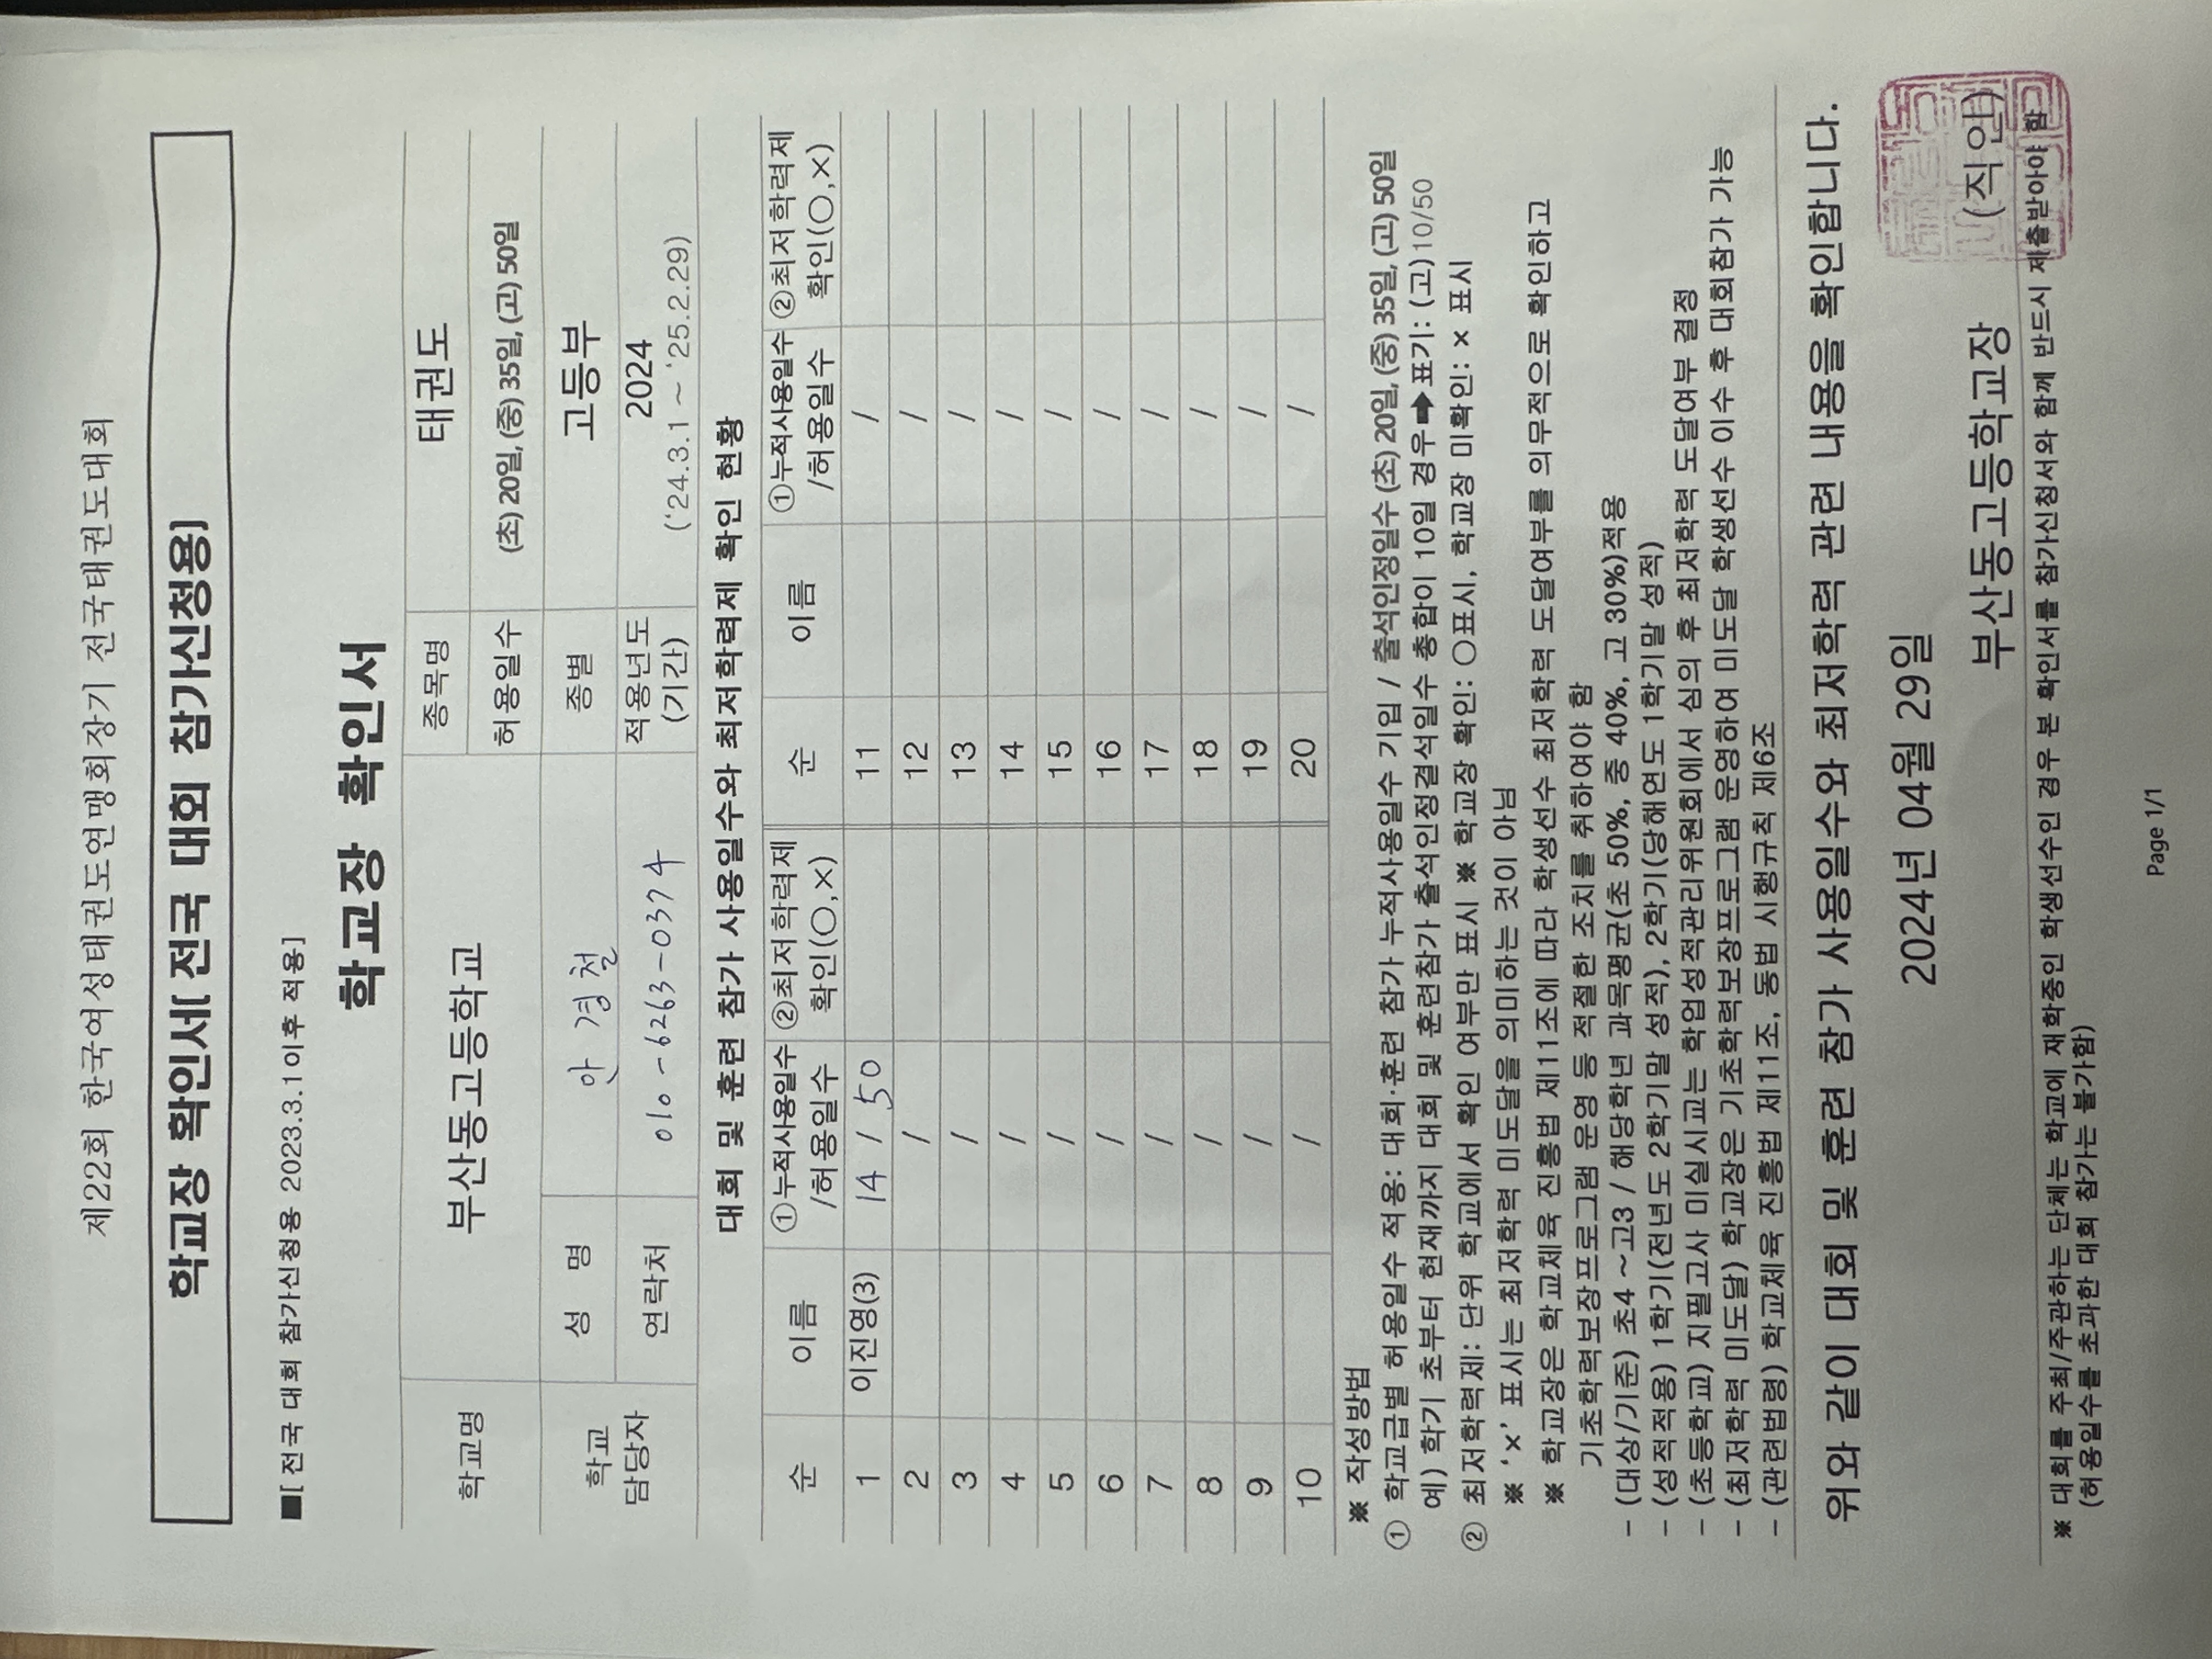 제22회 한국여성태권도연맹회장기 전국태권도대회
학교장 확인서[ 전국 대회 참가신청용]
■[ 전국 대회 참가신청용 2023.3.1이후 적용]
학교장 확인서
학교명 부산동고등학교 종목명 태권도
허용일수 (초) 20일, (중) 35일, (고) 50일
학교 담당자 성 명 안경철 종별 고등부
연락처 010-6263-0374 적용년도 (기간) 2024 ('24.3.1 ~ '25.2.29)
대회 및 훈련 참가 사용일수와 최저학력제 확인 현황
순 이름 ①누적사용일수 /허용일수 ②최저학력제 확인(○,×) 순 이름 ①누적사용일수 /허용일수 ②최저학력제 확인(○,×)
1 이진영(3) 14 / 50 11 /
2 / 12 /
3 / 13 /
4 / 14 /
5 / 15 /
6 / 16 /
7 / 17 /
8 / 18 /
9 / 19 /
10 / 20 /
※ 작성방법
① 학교급별 허용일수 적용: 대회·훈련 참가 누적사용일수 기입 / 출석인정일수 (초) 20일, (중) 35일, (고) 50일
예) 학기 초부터 현재까지 대회 및 훈련참가 출석인정결석일수 총합이 10일 경우➡표기: (고) 10/50
② 최저학력제: 단위 학교에서 확인 여부만 표시 ※ 학교장 확인: ○표시, 학교장 미확인: × 표시
※ '×' 표시는 최저학력 미도달을 의미하는 것이 아님
※ 학교장은 학교체육 진흥법 제11조에 따라 학생선수 최저학력 도달여부를 의무적으로 확인하고
기초학력보장프로그램 운영 등 적절한 조치를 취하여야 함
- (대상/기준) 초4 ~고3 / 해당학년 과목평균(초 50%, 중 40%, 고 30%)적용
- (성적적용) 1학기(전년도 2학기말 성적), 2학기(당해연도 1학기말 성적)
- (초등학교) 지필고사 미실시교는 학업성적관리위원회에서 심의 후 최저학력 도달여부 결정
- (최저학력 미도달) 학교장은 기초학력보장프로그램 운영하여 미도달 학생선수 이수 후 대회참가 가능
- (관련법령) 학교체육 진흥법 제11조, 동법 시행규칙 제6조
위와 같이 대회 및 훈련 참가 사용일수와 최저학력 관련 내용을 확인합니다.
2024년 04월 29일
부산동고등학교장 (직인)
※ 대회를 주최/주관하는 단체는 학교에 재학중인 학생선수인 경우 본 확인서를 참가신청서와 함께 반드시 제출받아야 함
(허용일수를 초과한 대회 참가는 불가함)
Page 1/1